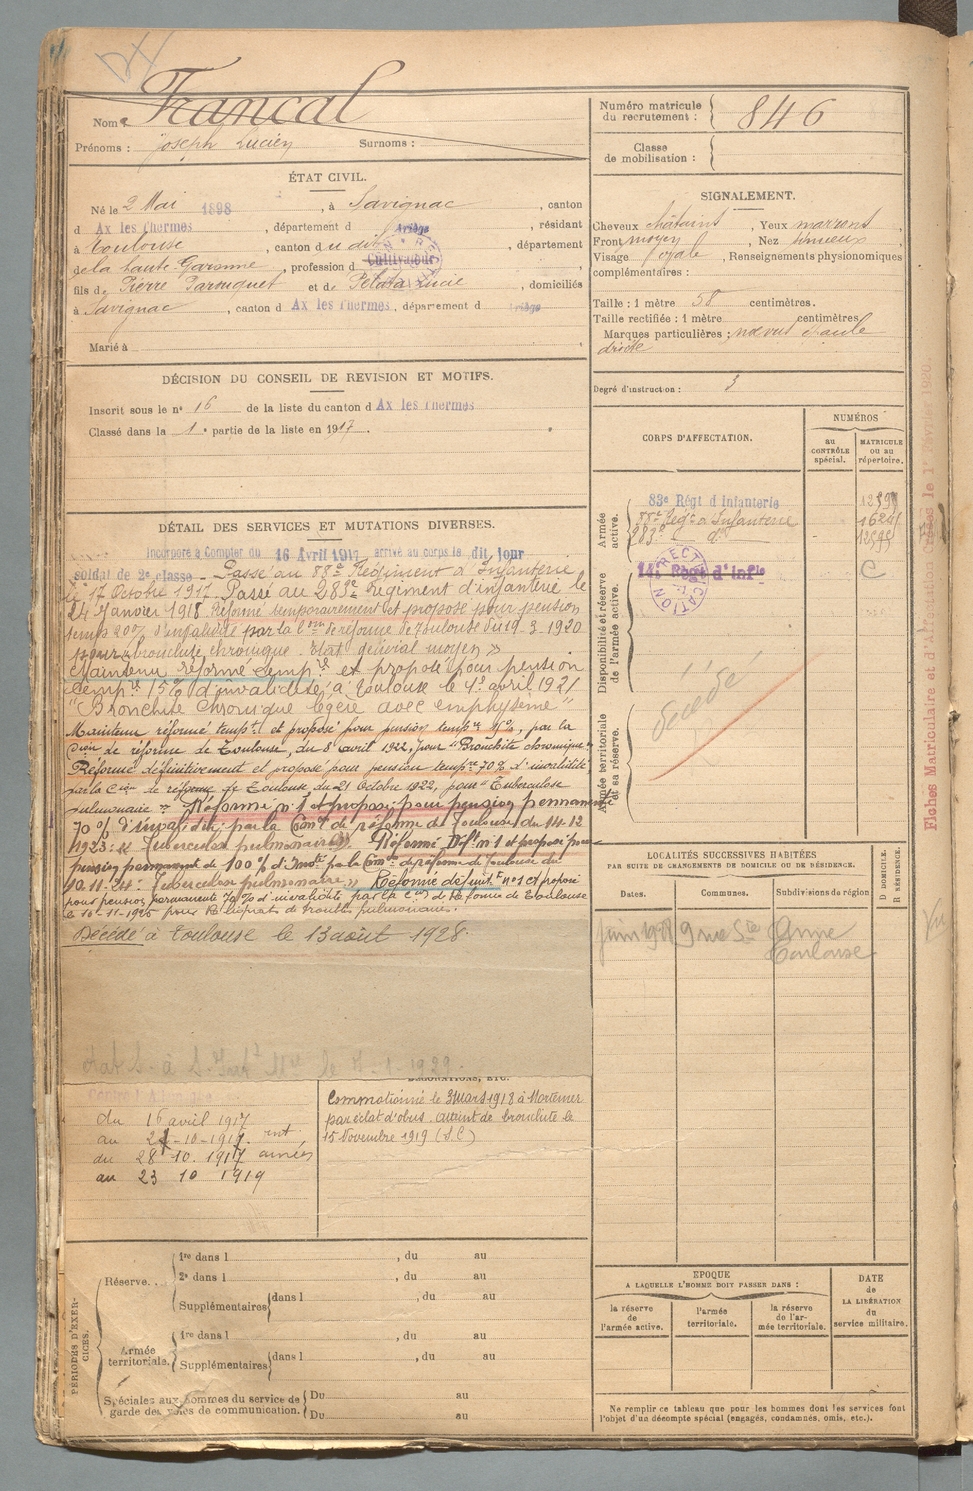 Nom : Francal
Prénoms : Joseph Lucien Surnoms :
ÉTAT CIVIL.
Né le 2 Mai 1898, à Savignac, canton
d Ax les Thermes, département d Ariège, résidant
à Toulouse, canton du dit, département
de la haute Garonne, profession d Cultivateur
fils de Pierre Parouquet et de Lucie, domiciliés
à Savignac, canton d Ax les Thermes, département d Ariège
Marié à
DÉCISION DU CONSEIL DE REVISION ET MOTIFS.
Inscrit sous le n° 16 de la liste du canton d Ax les Thermes
Classé dans la 1e partie de la liste en 1917.
DÉTAIL DES SERVICES ET MUTATIONS DIVERSES.
Incorporé à Compter du 16 Avril 1917 arrivé au corps le dit jour
soldat de 2e classe _ Passé au 88e Régiment d'Infanterie
le 17 Octobre 1917. Passé au 283e Régiment d'infanterie le
24 Janvier 1918. Réformé temporairement et proposé pour pension
temp 20% d'invalidité par la Con de réforme de Toulouse du 19.3.1920
pour "bronchite chronique. Etat général moyen"
Maintenu réformé temp.re et proposé pour pension
temp.re 15% d'invalidité, à Toulouse le 4 avril 1921
"Bronchite chronique légère avec emphysème"
Maintenu réformé temp.t et proposé pour pension temp.re %, par la
Con de réforme de Toulouse, du 8 avril 1922, pour "Bronchite chronique"
Réformé définitivement et proposé pour pension temp.re 70% d'invalidité
par la Con de réforme de Toulouse du 21 Octobre 1922, pour "Tuberculose
pulmonaire" Réformé n°1 et proposé pour pension permanente
70% d'invalidité, par la Com.on de réforme de Toulouse du 14.12
1923: Tuberculose pulmonaire. Réformé Déf.t n°1 et proposé pour
pension permanente de 100% d'Inv.té par la Com.on de réforme de Toulouse du
10.11.24: Tuberculose pulmonaire" Réformé définit.t n°1 et proposé
pour pension permanente 70% d'invalidité par la Con de Réforme de Toulouse
le 10-11-1925 pour reliquats de troubles pulmonaires.
Décédé à Toulouse le 13 août 1928.
le 7-1-1929.
du 16 avril 1917
au 27-10-1917. int.
du 28 10. 1917 armées
au 23 10 1919
DÉCORATIONS, ETC.
Commotionné le 31 mars 1918 à Mortemer
par éclat d'obus. Atteint de bronchite le
15 Novembre 1919 (S.C.)
PÉRIODES D'EXERCICES.
Réserve..
1re dans l , du au
2e dans l , du au
Supplémentaires dans l , du au
Armée territoriale.
1re dans l , du au
Supplémentaires dans l , du au
Spéciales aux hommes du service de garde des voies de communication.
Du au
Du au
Numéro matricule du recrutement : 846
Classe de mobilisation :
SIGNALEMENT.
Cheveux châtains, Yeux marrons,
Front moyen, Nez sinueux,
Visage ovale, Renseignements physionomiques
complémentaires :
Taille : 1 mètre 58 centimètres.
Taille rectifiée : 1 mètre centimètres
Marques particulières : noevus épaule
droite
Degré d'instruction : 3
CORPS D'AFFECTATION.
NUMÉROS
au CONTRÔLE spécial.
MATRICULE ou au répertoire.
Armée active.
83e Régt d Infanterie
88e Régt d'Infanterie
283e d°
Disponibilité et réserve de l'armée active.
14e Régt d'Infie C
Armée territoriale et sa réserve.
décédé
LOCALITÉS SUCCESSIVES HABITÉES
PAR SUITE DE CHANGEMENTS DE DOMICILE OU DE RÉSIDENCE.
Dates.
Communes.
Subdivisions de région
D DOMICILE.
R RÉSIDENCE.
9 rue Ste Anne
Toulouse
EPOQUE
A LAQUELLE L'HOMME DOIT PASSER DANS :
la réserve de l'armée active.
l'armée territoriale.
la réserve de l'armée territoriale.
DATE de LA LIBÉRATION du service militaire.
Ne remplir ce tableau que pour les hommes dont les services font
l'objet d'un décompte spécial (engagés, condamnés, omis, etc.).
Fiches Matriculaire et d'Affectation créées le 1er Février 1920